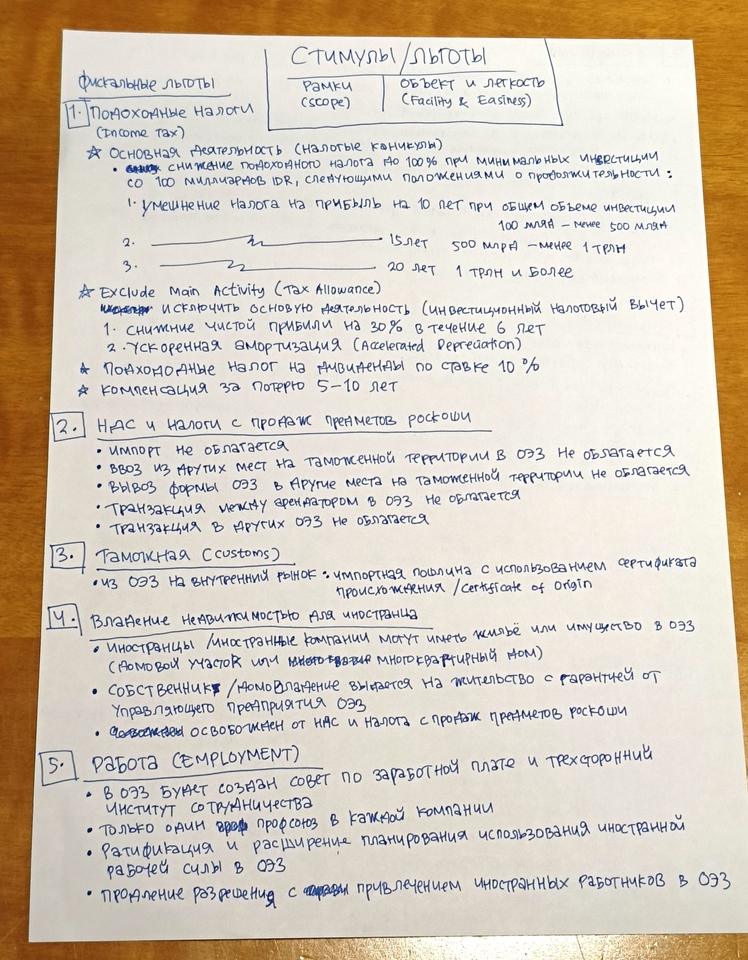 СТИМУЛЫ/ЛЬГОТЫ
РАМКИ
(SCOPE)
ОБЪЕКТ И ЛЕГКОСТЬ
(Facility & Easiness)
Фискальные льготы
1. Подоходные налоги
(Income Tax)
☆ Основная деятельность (налотые каникулы)
• снижение подоходного налога до 100% при минимальных инвестиции
со 100 миллиардов IDR, следующими положениями о продолжительности:
1. умешнение налога на прибыль на 10 лет при общем объеме инвестиции
100 млрд – менее 500 млрд
2. 15 лет 500 млрд – менее 1 трлн
3. 20 лет 1 трлн и более
☆ Exclude Main Activity (Tax Allowance)
исключить основую деятельность (инвестиционный налоговый вычет)
1. снижние чистой прибили на 30% в течение 6 лет
2. ускоренная амортизация (Accelerated Depreciation)
☆ Подоходные налог на дивиденды по ставке 10%
☆ Компенсация за потерю 5–10 лет
2. НДС и налоги с продаж предметов роскоши
• импорт не облагается
• ввоз из других мест на таможенной территории в ОЭЗ не облагается
• вывоз формы ОЭЗ в другие места на таможенной территории не облагается
• транзакция между арендатором в ОЭЗ не облагается
• транзакция в других ОЭЗ не облагается
3. Таможная (customs)
• из ОЭЗ на внутренний рынок: импортная пошлина с использованием сертификата
происхождения / Certificate of Origin
4. Владение недвижимостью для иностранца
• иностранцы / иностранные компании могут иметь жильё или имущество в ОЭЗ
(домовой участок или многоквартирный дом)
• собственник / домовладение выдается на жительство с гарантией от
управляющего предприятия ОЭЗ
• освобожден от НДС и налога с продаж предметов роскоши
5. Работа (EMPLOYMENT)
• в ОЭЗ будет создан совет по заработной плате и трехсторонний
институт сотрудничества
• только один профсоюз в каждой компании
• ратификация и расширение планирования использования иностранной
рабочей силы в ОЭЗ
• продление разрешения с привлечением иностранных работников в ОЭЗ